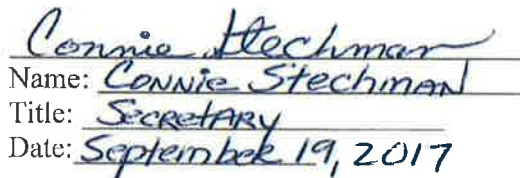 Connie Stechman
Name: Connie Stechman
Title: Secretary
Date: September 19, 2017